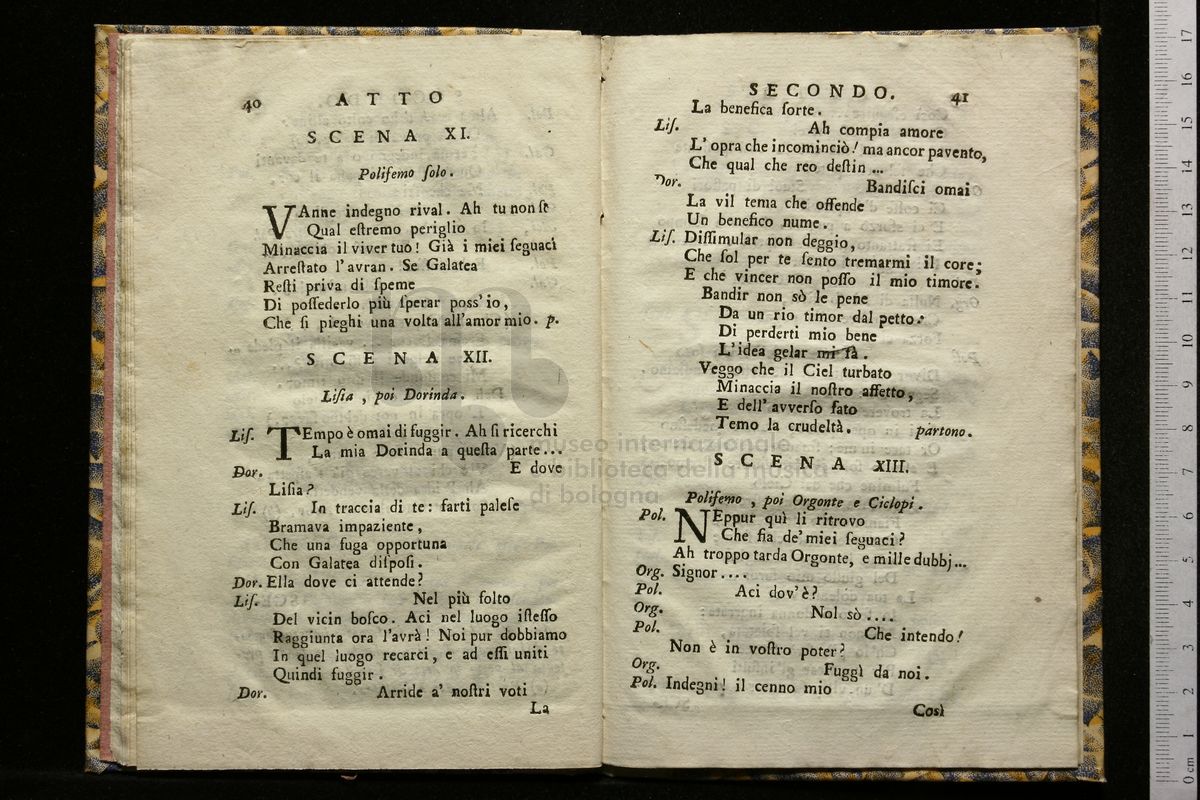 40 ATTO
SCENA XI.
Polifemo ſolo.
VAnne indegno rival. Ah tu non ſe
Qual eſtremo periglio
Minaccia il viver tuo! Già i miei ſeguaci
Arreſtato l'avran. Se Galatea
Reſti priva di ſpeme
Di poſſederlo più ſperar poss'io,
Che ſi pieghi una volta all'amor mio. p.
SCENA XII.
Liſia, poi Dorinda.
Liſ. TEmpo è omai di fuggir. Ah ſi ricerchi
La mia Dorinda a queſta parte...
Dor. E dove
Liſia?
Liſ. In traccia di te: farti paleſe
Bramava impaziente,
Che una fuga opportuna
Con Galatea diſpoſi.
Dor. Ella dove ci attende?
Liſ. Nel più folto
Del vicin boſco. Aci nel luogo iſteſſo
Raggiunta ora l'avrà! Noi pur dobbiamo
In quel luogo recarci, e ad eſſi uniti
Quindi fuggir.
Dor. Arride a' noſtri voti
La
SECONDO. 41
La benefica ſorte.
Liſ. Ah compia amore
L'opra che incominciò! ma ancor pavento,
Che qual che reo deſtin...
Dor. Bandiſci omai
La vil tema che offende
Un benefico nume.
Liſ. Diſſimular non deggio,
Che ſol per te ſento tremarmi il core;
E che vincer non poſſo il mio timore.
Bandir non sò le pene
Da un rio timor dal petto:
Di perderti mio bene
L'idea gelar mi fà.
Veggo che il Ciel turbato
Minaccia il noſtro affetto,
E dell'avverſo fato
Temo la crudeltà. partono.
SCENA XIII.
Polifemo, poi Orgonte e Ciclopi.
Pol. NEppur quì li ritrovo
Che fia de' miei ſeguaci?
Ah troppo tarda Orgonte, e mille dubbj...
Org. Signor....
Pol. Aci dov'è?
Org. Nol sò....
Pol. Che intendo!
Non è in voſtro poter?
Org. Fuggì da noi.
Pol. Indegni! il cenno mio
Così
museo internazionale
biblioteca della musica
di bologna
17
16
15
14
13
12
11
10
9
8
7
6
5
4
3
2
1
0 cm